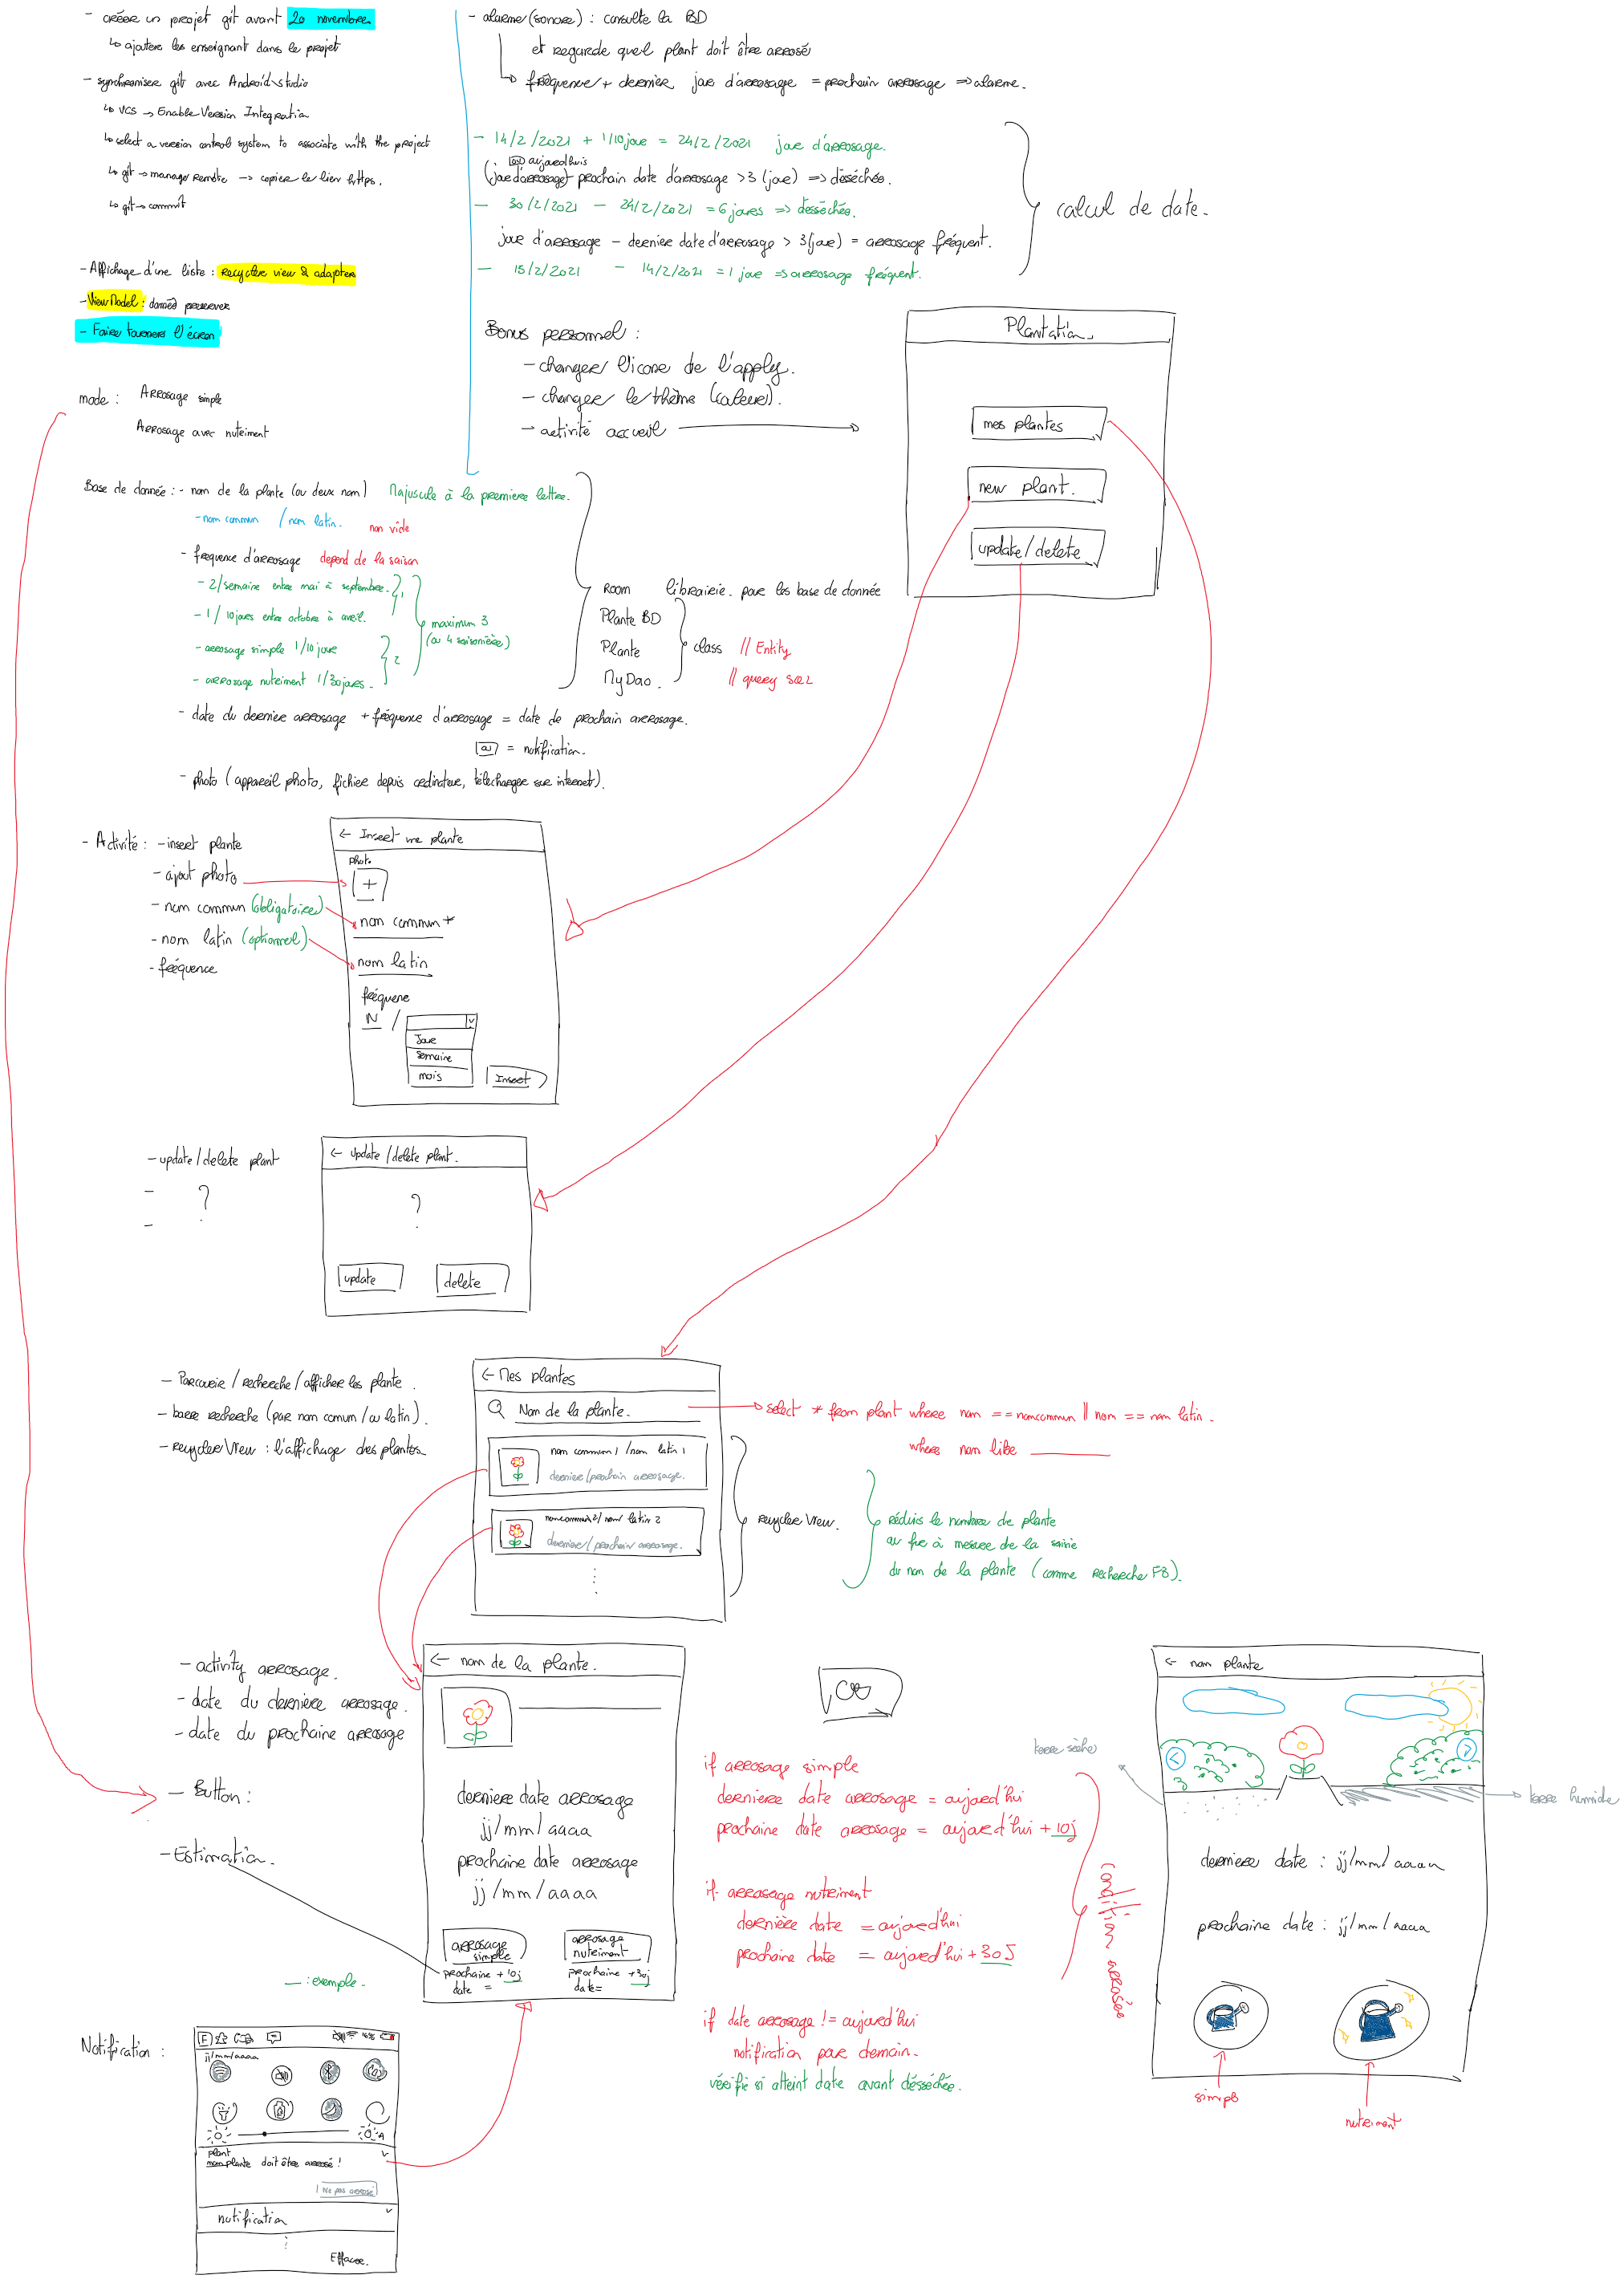 - créer un projet git avant 20 novembre
↳ ajouter les enseignant dans le projet
- synchroniser git avec Android studio
↳ VCS → Enable Version Integration
↳ select a version control system to associate with the project
↳ git → manage remote → copier le lien https.
↳ git → commit
- Affichage d'une liste : Recycler view & adapter
- ViewModel : donnéé preserver
- Faire tourner l'écran
mode : Arrosage simple
Arrosage avec nutriment
- alarme (sonore) : consulte la BD
et regarde quel plant doit être arrosé
↳ fréquence + dernier jour d'arrosage = prochain arrosage => alarme.
- 14/2/2021 + 1/10 jour = 24/2/2021 jour d'arrosage.
ou aujourd'huis
(jour d'arrosage) - prochain date d'arrosage > 3 (jour) => desséchée.
- 30/2/2021 - 24/2/2021 = 6 jours => desséchée.
jour d'arrosage - dernier date d'arrosage > 3 (jour) = arrosage fréquent.
- 15/2/2021 - 14/2/2021 = 1 jour => arrosage fréquent.
calcul de date.
Bonus personnel :
- changer l'icone de l'apply.
- changer le thème (couleur).
→ activité accueil
Plantation
mes plantes
new plant.
update/delete
Base de donnée : - nom de la plante (ou deux nom) Majuscule à la première lettre.
- nom commun / nom latin. non vide
- frequence d'arrosage depend de la saison
- 2/semaine entre mai à septembre. } 1
- 1/10 jours entre octobre à avril.
- arrosage simple 1/10 jour } 2
- arrosage nutriment 1/30 jours.
maximum 3
(ou 4 saisonière)
Room librairie. pour les base de donnée
Plante BD
Plante class // Entity
MyDao. // query SQL
- date du dernier arrosage + fréquence d'arrosage = date de prochain arrosage.
= notification.
- photo (appareil photo, fichier depuis ordinateur, télécharger sur internet).
- Activité : - insert plante
- ajout photo
- nom commun (obligatoire)
- nom latin (optionnel)
- fréquence
← Insert une plante
photo
+
nom commun *
nom latin
fréquence
N /
Jour
Semaine
mois
Insert
- update/delete plant
- ?
-
← update/delete plant.
?
update
delete
- Parcourir / recherche / afficher les plante.
- barre recherche (par nom comun / ou latin).
- recycler View : l'affichage des plantes
← Mes plantes
Nom de la plante.
nom commun 1 / nom latin 1
dernier/prochain arrosage.
nom commun 2 / nom latin 2
dernier/prochain arrosage.
→ select * from plant where nom == nomcommun || nom == nom latin.
where nom like
recycler View.
réduis le nombre de plante
au fur à mesure de la saisie
du nom de la plante (comme recherche FB).
- activity arrosage.
- date du dernière arrosage.
- date du prochaine arrosage
- Button :
- Estimation.
← nom de la plante.
derniere date arrosage
jj/mm/aaaa
prochaine date arrosage
jj/mm/aaaa
arrosage simple
arrosage nutriment
prochaine +10j
date =
prochaine +30j
date =
— : exemple.
if arrosage simple
derniere date arrosage = aujourd'hui
prochaine date arrosage = aujourd'hui + 10j
if arrosage nutriment
dernière date = aujourd'hui
prochaine date = aujourd'hui + 30J
if date arrosage != aujourd'hui
notification pour demain.
vérifie si atteint date avant désséchée.
condition arrosée
← nom plante
terre sèche
terre humide
derniere date : jj/mm/aaaa
prochaine date : jj/mm/aaaa
simple
nutriment
Notification :
jj/mm/aaaa
plant
nom plante doit être arrosé !
Ne pas arrosé
notification
Effacer.